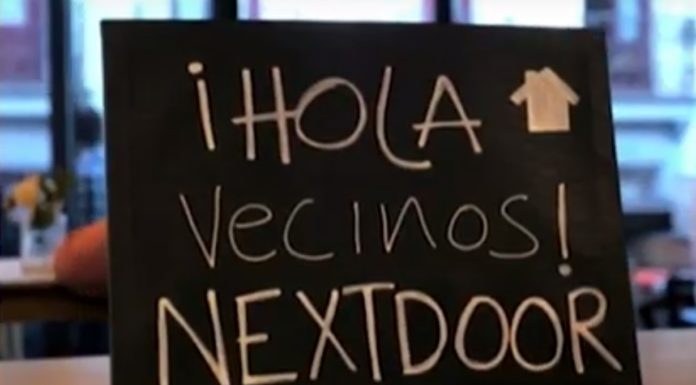 ¡HOLA
Vecinos!
NEXTDOOR